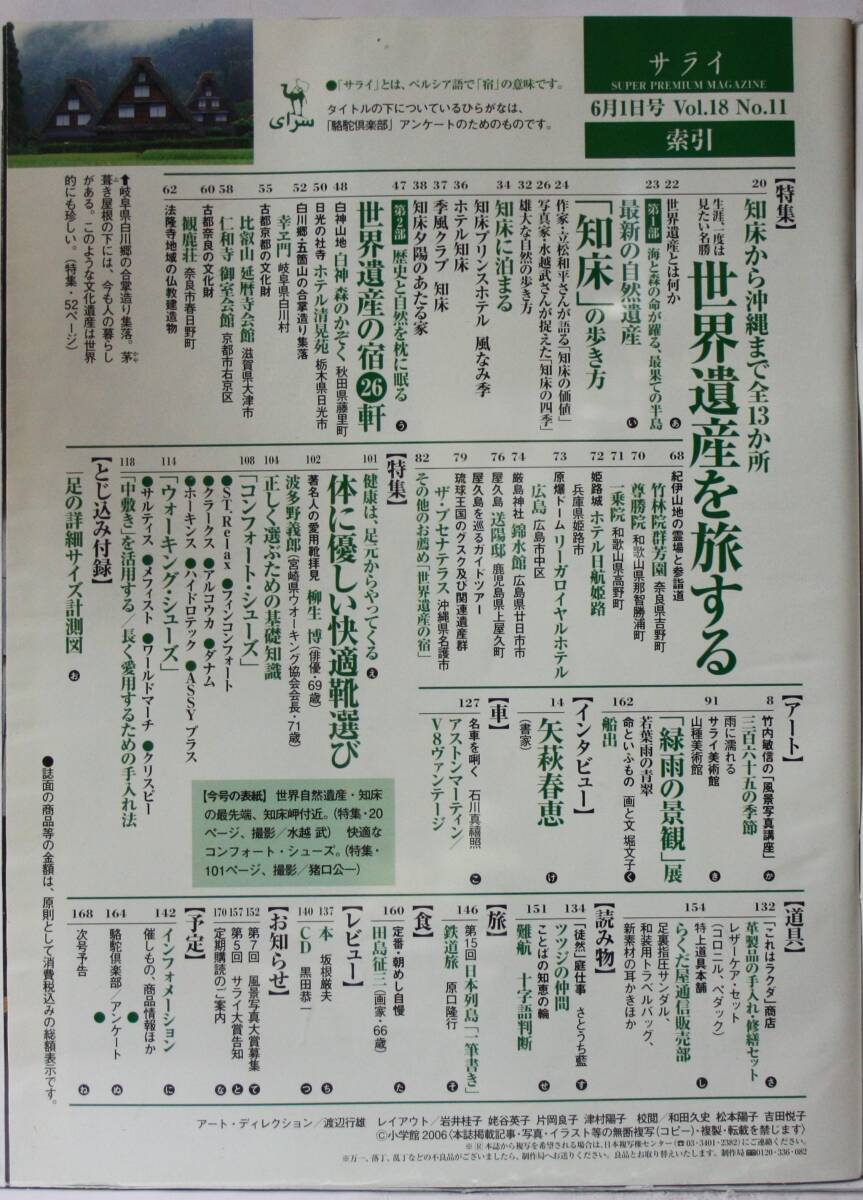 サライ
SUPER PREMIUM MAGAZINE
6月1日号 Vol.18 No.11
索引
●「サライ」とは、ペルシア語で「宿」の意味です。
タイトルの下についているひらがなは、
「駱駝倶楽部」アンケートのためのものです。
سرای
⬆岐阜県白川郷の合掌造り集落。茅
葺き屋根の下には、今も人の暮らし
がある。このような文化遺産は世界
的にも珍しい。(特集・52ページ)
【特集】
20 知床から沖縄まで全13か所
生涯、一度は
見たい名勝
世界遺産を旅する
22 世界遺産とは何か あ
23 第1部 海と森の命が躍る、最果ての半島
最新の自然遺産 い
「知床」の歩き方
24 作家・立松和平さんが語る「知床の価値」
26 写真家・水越武さんが捉えた「知床の四季」
32 雄大な自然の歩き方
34 知床に泊まる
知床プリンスホテル 風なみ季
36 ホテル知床
37 季風クラブ 知床
38 知床夕陽のあたる家
47 第2部 歴史と自然を枕に眠る う
世界遺産の宿26軒
48 白神山地 白神 森のかぞく 秋田県藤里町
50 日光の社寺 ホテル清晃苑 栃木県日光市
52 白川郷・五箇山の合掌造り集落
幸ヱ門 岐阜県白川村
55 古都京都の文化財
比叡山 延暦寺会館 滋賀県大津市
58 仁和寺 御室会館 京都市右京区
60 古都奈良の文化財
観鹿荘 奈良市春日野町
62 法隆寺地域の仏教建造物
68 紀伊山地の霊場と参詣道
竹林院群芳園 奈良県吉野町
70 尊勝院 和歌山県那智勝浦町
71 一乗院 和歌山県高野町
72 姫路城 ホテル日航姫路
兵庫県姫路市
73 原爆ドーム リーガロイヤルホテル
広島 広島市中区
74 厳島神社 錦水館 広島県廿日市市
76 屋久島 送陽邸 鹿児島県上屋久町
屋久島を巡るガイドツアー
79 琉球王国のグスク及び関連遺産群
ザ・ブセナテラス 沖縄県名護市
82 その他のお薦め「世界遺産の宿」
【特集】
101 健康は、足元からやってくる え
体に優しい快適靴選び
102 著名人の愛用靴拝見 柳生 博(俳優・69歳)
波多野義郎(宮崎県ウオーキング協会会長・71歳)
104 正しく選ぶための基礎知識
108 「コンフォート・シューズ」
●ST.Relax ●フィンコンフォート
●クラークス ●アルコウカ ●ダナム
●ホーキンス ●ハイドロテック ●ASSY プラス
114 「ウォーキング・シューズ」
●サルティス ●メフィスト ●ワールドマーチ ●クリスピー
118 「中敷き」を活用する/長く愛用するための手入れ法
【とじ込み付録】
「足の詳細サイズ計測図」 お
【アート】
8 竹内敏信の「風景写真講座」 か
三百六十五の季節
雨に濡れる
91 サライ美術館 き
山種美術館
「緑雨の景観」展
若葉雨の青翠
162 命といふもの 画と文 堀文子 く
船出
【インタビュー】
14 矢萩春恵 け
(書家)
【車】
127 名車を唎く 石川真禧照 こ
アストンマーティン/
V8ヴァンテージ
【今号の表紙】 世界自然遺産・知床
の最先端、知床岬付近。(特集・20
ページ、撮影/水越 武) 快適な
コンフォート・シューズ。(特集・
101ページ、撮影/猪口公一)
【道具】
132 「これはラクダ」商店 さ
革製品の手入れ・修繕セット
レザーケア・セット
(コロニル、ペダック)
154 特上道具本舗 し
らくだ屋通信販売部
足裏指圧サンダル、
和装用トラベルバッグ、
新素材の耳かきほか
【読み物】
134 「徒然」庭仕事 さとうち藍 す
ツツジの仲間
151 ことばの知恵の輪 せ
難航 十字語判断
【旅】
146 第15回 日本列島「一筆書き」 そ
鉄道旅 原口隆行
【食】
160 定番・朝めし自慢 た
田島征三(画家・66歳)
【レビュー】
137 本 坂根厳夫 ち
140 CD 黒田恭一 つ
【お知らせ】
152 第7回 風景写真大賞募集 て
157 第5回 サライ大賞告知 と
170 定期購読のご案内 な
【予定】
142 インフォメーション に
催しもの、商品情報ほか
164 駱駝倶楽部/アンケート ぬ
168 次号予告 ね
●誌面の商品等の金額は、原則として消費税込みの総額表示です。
アート・ディレクション/渡辺行雄 レイアウト/岩井桂子 姥谷英子 片岡良子 津村陽子 校閲/和田久史 松本陽子 吉田悦子
©小学館2006〈本誌掲載記事・写真・イラスト等の無断複写(コピー)・複製・転載を禁じます〉
※Ⓡ本誌から複写を希望される場合は、日本複写権センター(☎03・3401・2382)にご連絡ください。
※万一、落丁、乱丁などの不良品がございましたら、制作局へお送りください。良品とお取り替えいたします。制作局 0120・336・082